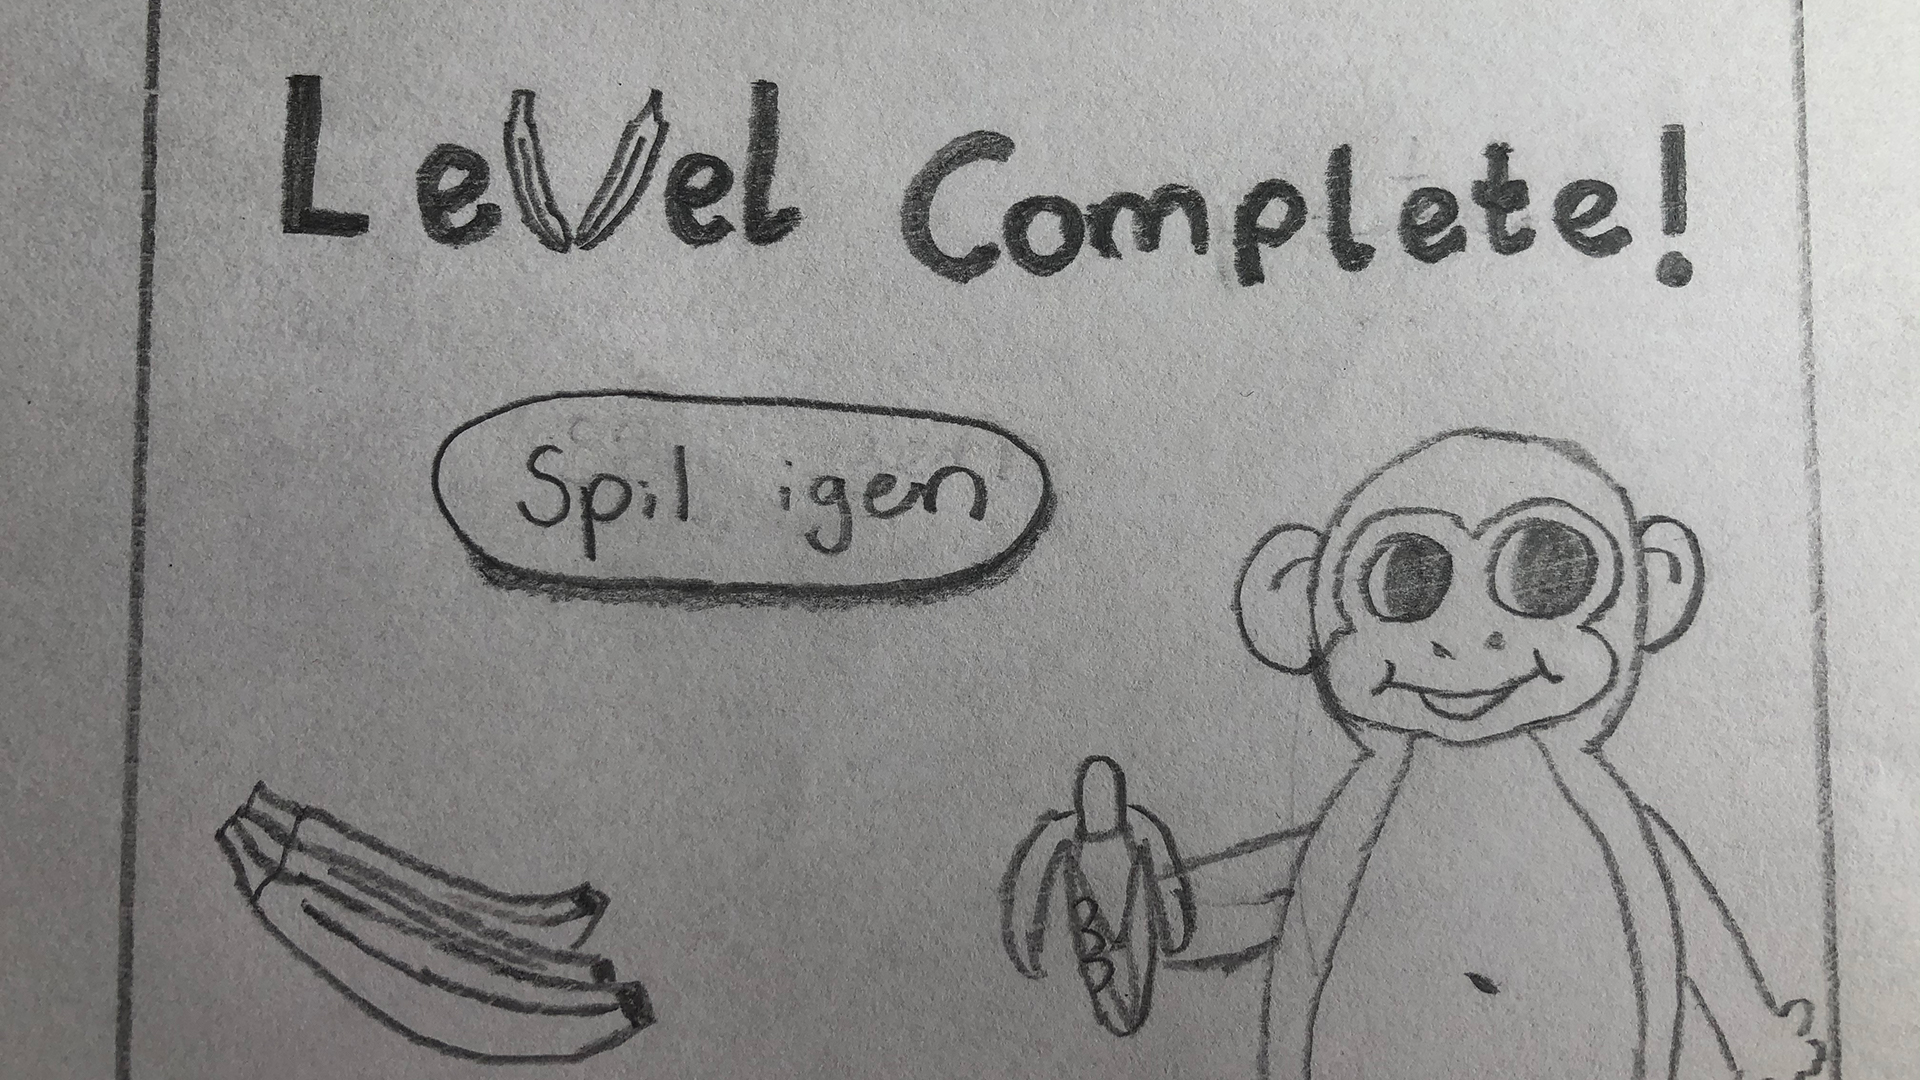 LeVel Complete!
Spil igen